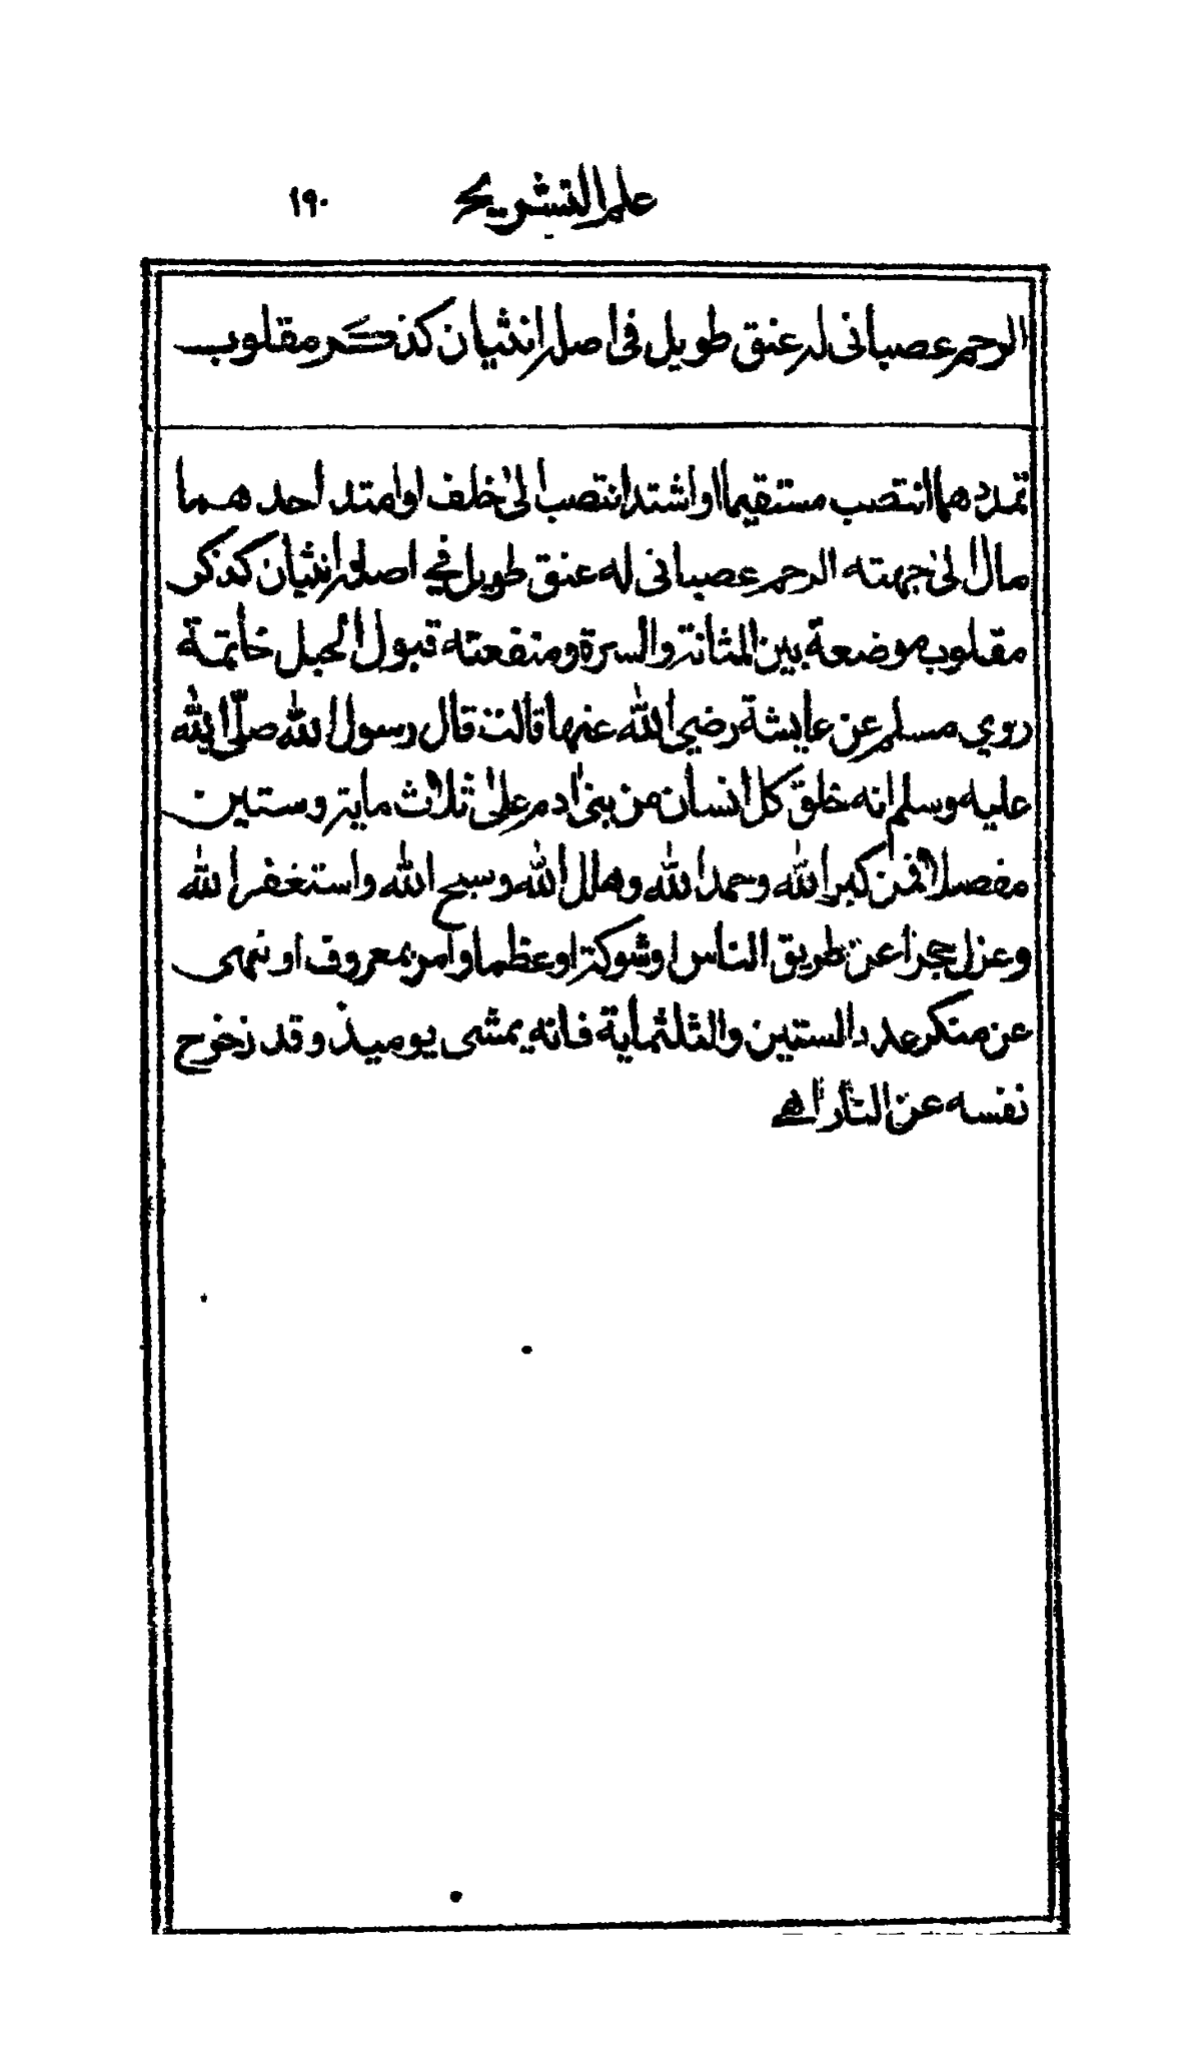 علم التشريح ١٩٠
الرحم عصبانى له عنق طويل فى اصله انثيان كذكر مقلوب
تمددهما انتصب مستقيما او اشتد انتصب الى خلف او امتد احدهما
مال الى جهته الرحم عصبانى له عنق طويل فى اصله انثيان كذكر
مقلوب موضعة بين المثانة والسرة ومنفعته قبول الحبل خاتمة
روي مسلم عن عايشة رضي الله عنها قالت قال رسول الله صلّى الله
عليه وسلم انه خلق كل انسان من بنى ادم على ثلاث ماية وستين
مفصلا فمن كبر الله وحمد الله وهلل الله وسبح الله واستغفر الله
وعزل حجرا عن طريق الناس او شوكة او عظما وامر بمعروف او نهى
عن منكر عدد الستين والثلثماية فانه يمشى يوميذ وقد زخزح
نفسه عن النار اهـ